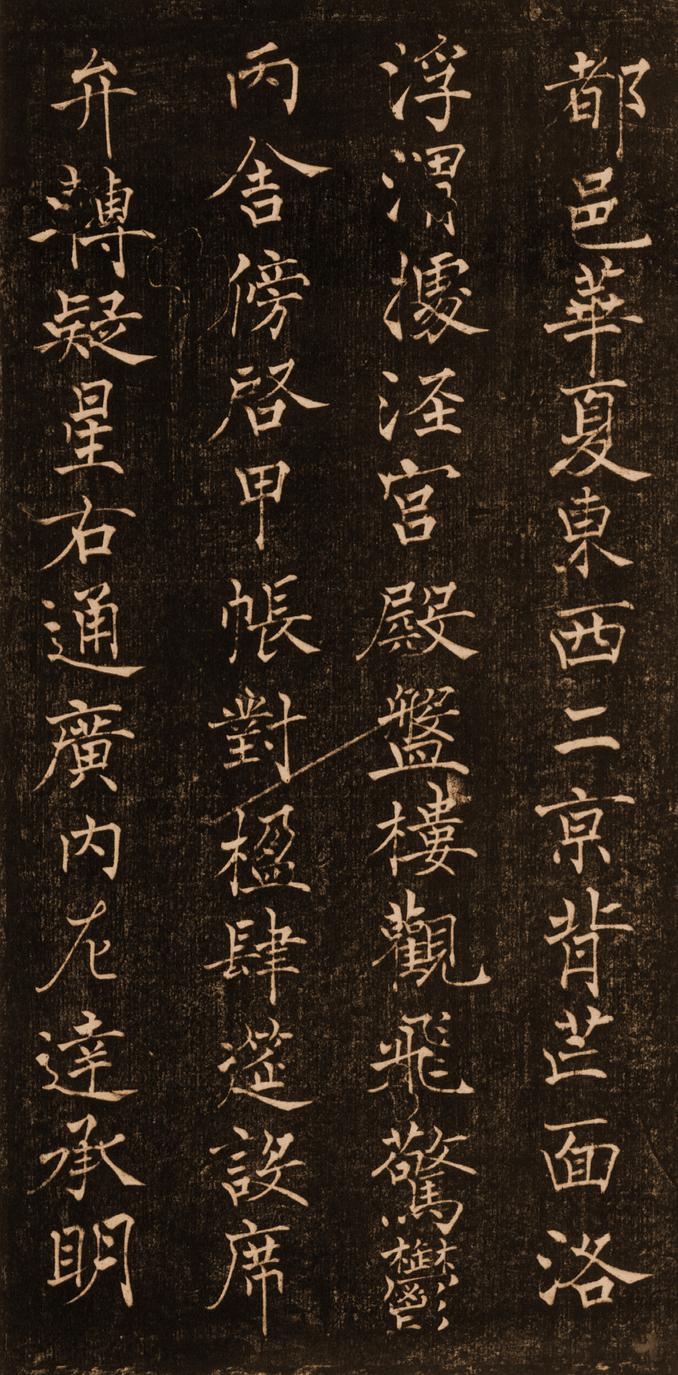 都邑華夏東西二亰背芒面洛
浮渭據涇宫殿盤樓觀飛驚鬱
丙舍傍啓甲帳對楹肆筵設席
弁轉疑星右通廣内左達承明